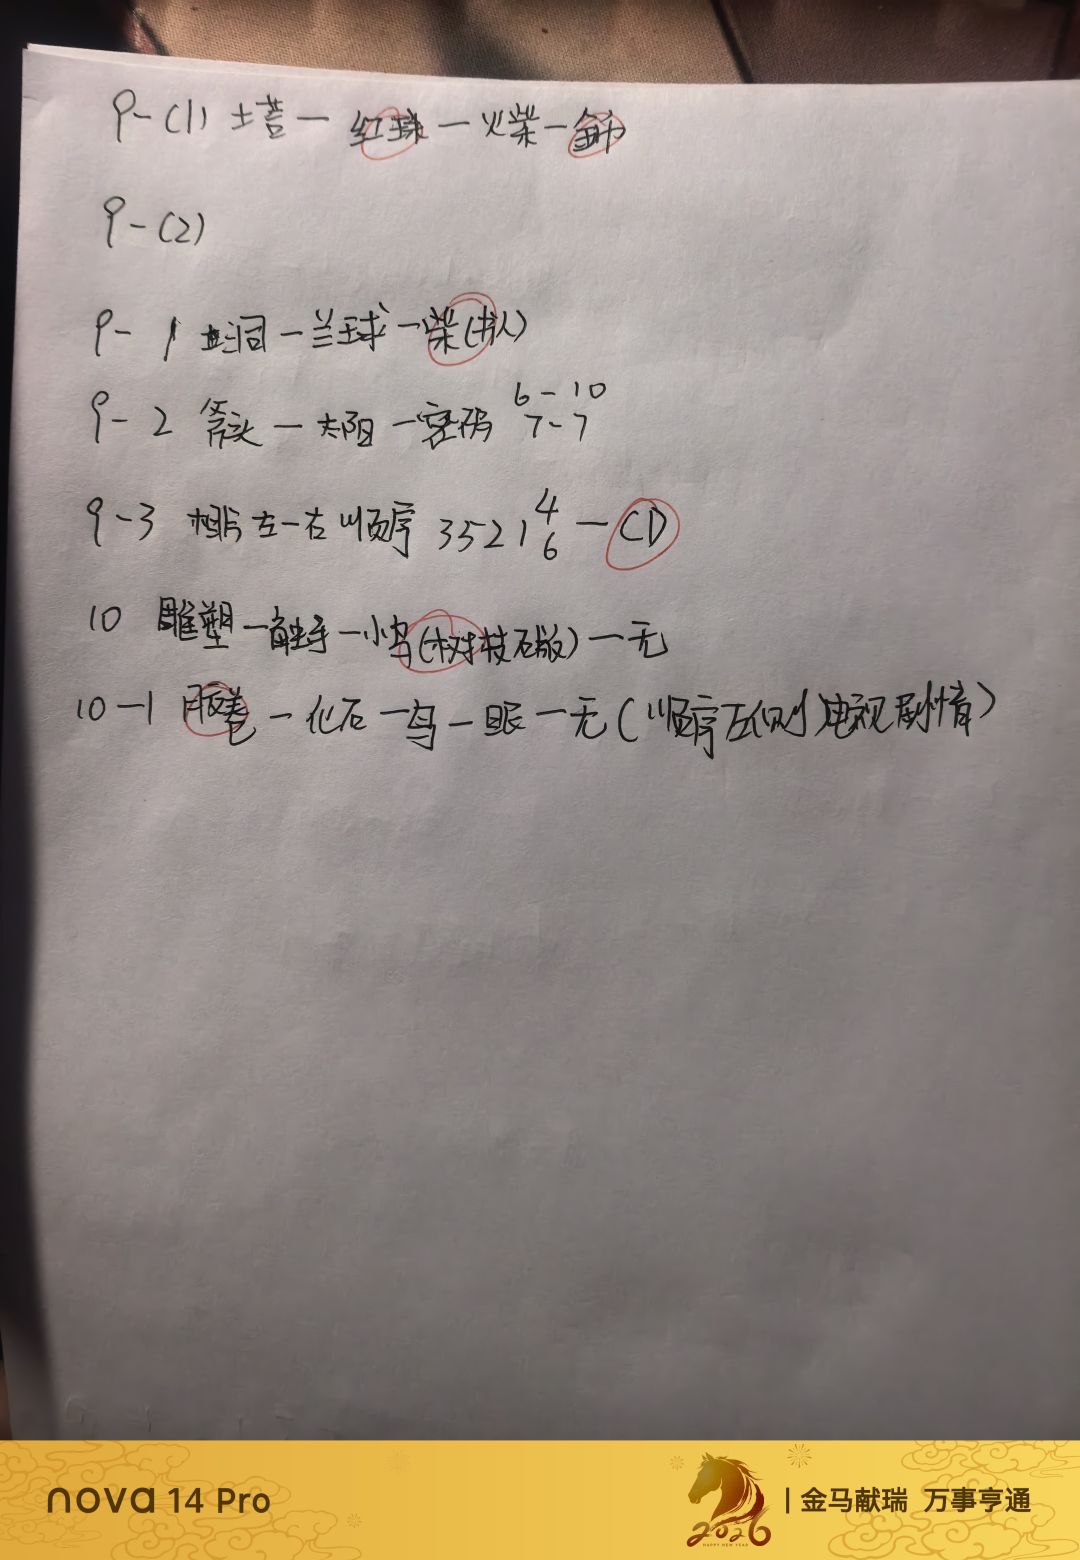 9-(1) 土苔一 红球 一火柴一金币
9-(2)
9-1 土洞一兰球一柴(书人)
9-2 斧头一太阳一密码 6-10 7-7
9-3 相片左一右顺序 3521 4 6 一CD
10 雕塑一触手一小鸟(树枝石版)一无
10-1 胶卷一化石一鸟一眼一无(顺序左侧)电视剧情)
nova 14 Pro
2026
HAPPY NEW YEAR
金马献瑞 万事亨通